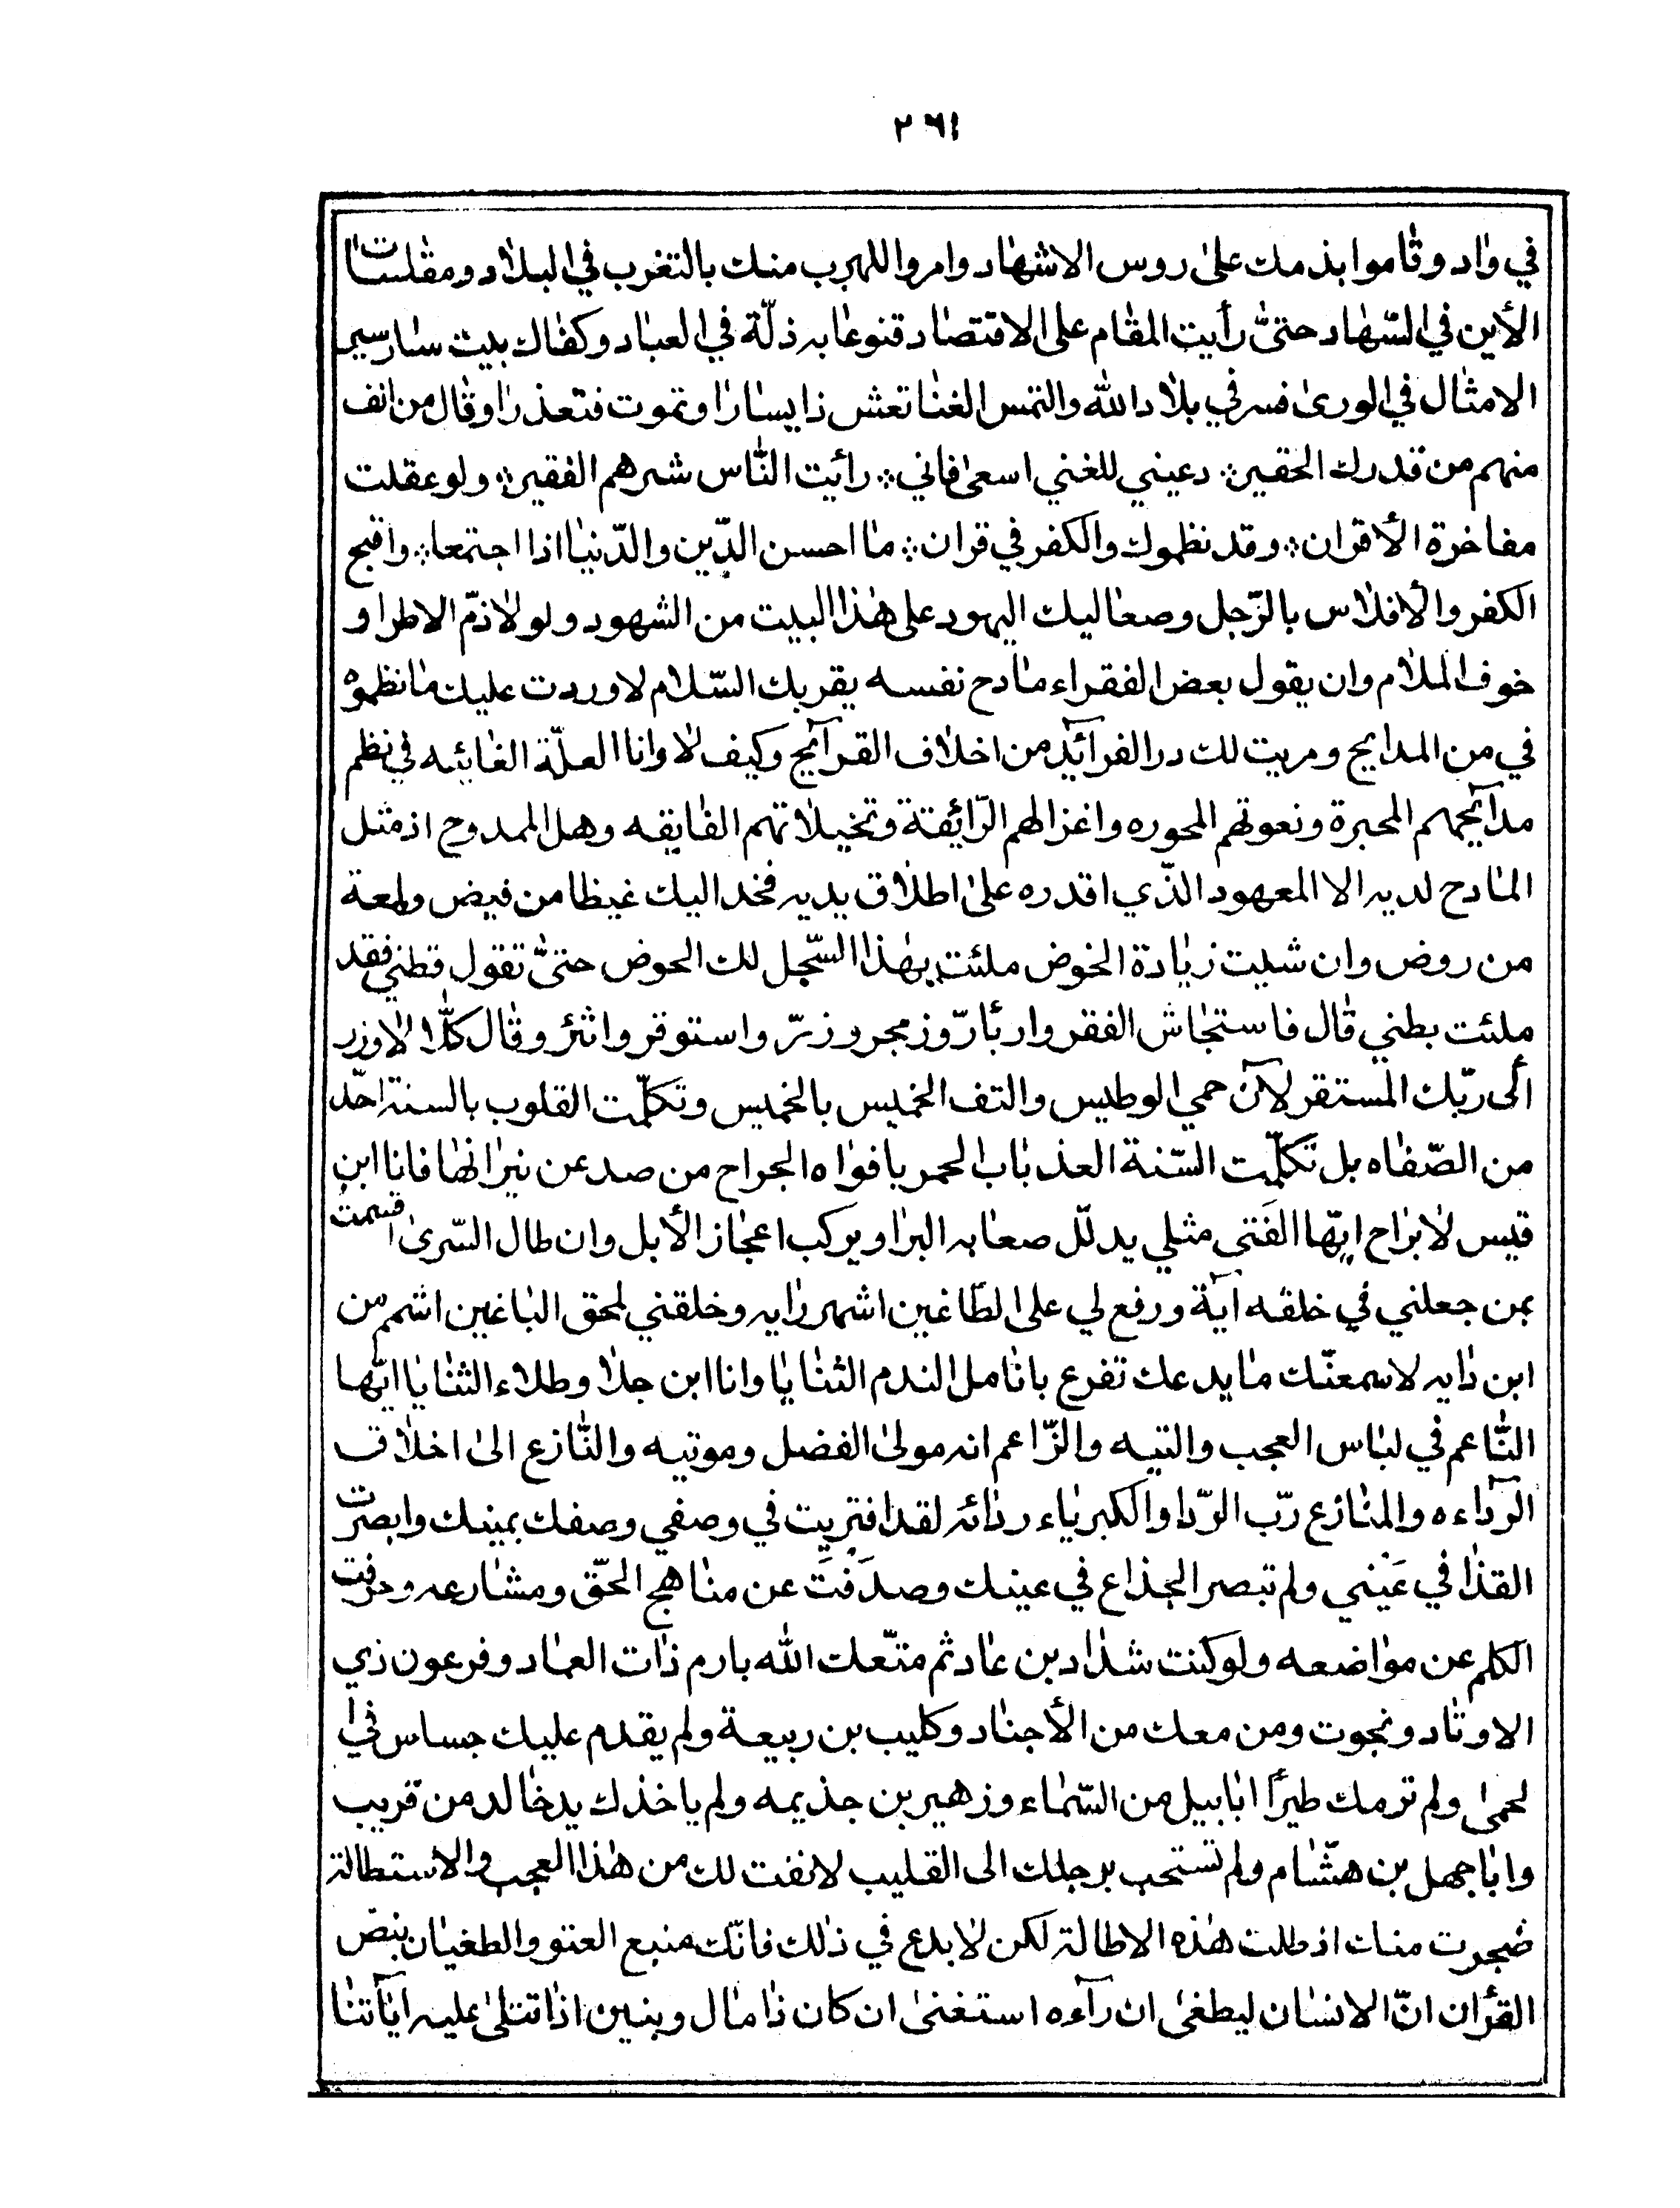 ٢٦١
في واد وقاموا بذمك على روس الاشهاد وامروا للهرب منك بالتغرب في البلاد ومقاسات
الأين في السّهاد حتىّ رأيت المقام على الاقتصاد قنوعا به ذلّة في العباد وكفاك بيت سار سير
الامثال في الورى فسر في بلاد الله والتمس الغنا تعش ذا يسارا وتموت فتعذرا وقال من انف
منهم من قدرك الحقير؞ دعيني للغني اسعى فاني؞ رائيت النّاس شرهم الفقير؞ ولو عقلت
مفاخرة الأقران؞ وقد نظموك والكفر في قران؞ ما احسن الدّين والدّنيا اذا اجتمعا؞ واقبح
الكفر والأفلاس بالرّجل وصعاليك اليهود على هذا البيت من الشهود ولولا ذمّ الاطرا و
خوف الملام وان يقول بعض الفقراء مادح نفسه يقربك السّلام لاوردت عليك ما نظموه
في من المدايح ومريت لك در الفرآئد من اخلاف القرآئح وكيف لا وانا العلّة الغائيه في نظم
مدآئحهم المحبرة ونعوتهم المحوره واغزالهم الرّائقة وتخيلاتهم الفايقه وهل الممدوح اذ مثل
المادح لديه الا المعهود الذّي اقدره على اطلاق يديه فخد اليك غيظا من فيض ولمعة
من روض وان شيت زيادة الخوض ملئت بهذا السّجل لك الحوض حتىّ تقول قطني فقد
ملئت بطني قال فاستجاش الفقر واربأرّ وزمجر وزرّ واستوقر واثئر وقال كلّا لا وزر
ألى ربّك المستقر لآن حمي الوطيس والتف الخميس بالخميس وتكلّمت القلوب بالسنة احّد
من الصّفاه بل تكلّمت السّنة العذباب الحمر بافواه الجراح من صد عن نيرانها فانا ابن
قيس لا براح ايّها الفَتى مثلي يدلّل صعابه البرا ويركب اعجاز الأبل وان طال السّرى اقسمت
بمن جعلني في خلقه آية ورفع لي على الطّاغين اشهر رايه وخلقني لمحق الباغين اشمم من
ابن دايه لاسمعنّك ما يدعك تفرع بانامل الندم الثنايا وانا ابن جلا وطلاء الثنايا ايّها
النّاعم في لباس العجب والتيه والزّاعم انه مولى الفضل وموتيه والنّازع الى اخلاق
الرّداءه والمنازع ربّ الرّدا والكبرياء ردائه لقد افتريت في وصفي وصفك بمينك وابصرت
القذا في عَيْني ولم تبصر الجذاع في عينك وصدَفْتَ عن مناهج الحقّ ومشارعه وحرفت
الكلم عن مواضعه ولو كنت شداد بن عاد ثم متّعك الله بارم ذات العماد وفرعون ذي
الاوتاد ونجوت ومن معك من الأجناد وكليب بن ربيعة ولم يقدم عليك جساس في
لحمى ولم ترمك طيراً ابابيل من السّماء وزهير بن جذيمه ولم ياخذك يد خالد من قريب
وابا جهل بن هشّام ولم تستحب برجلك الى القليب لانفت لك من هذا العجب والاستطالة
ضجرت منك اذ طلت هذه الاطالة لكن لا بدع في ذلك فانّك منبع العتو والطغيان بنصّ
القرأن انّ الانسان ليطغى ان رآءه استغنى ان كان ذا مال وبنين اذا تتلى عليه اياتنا